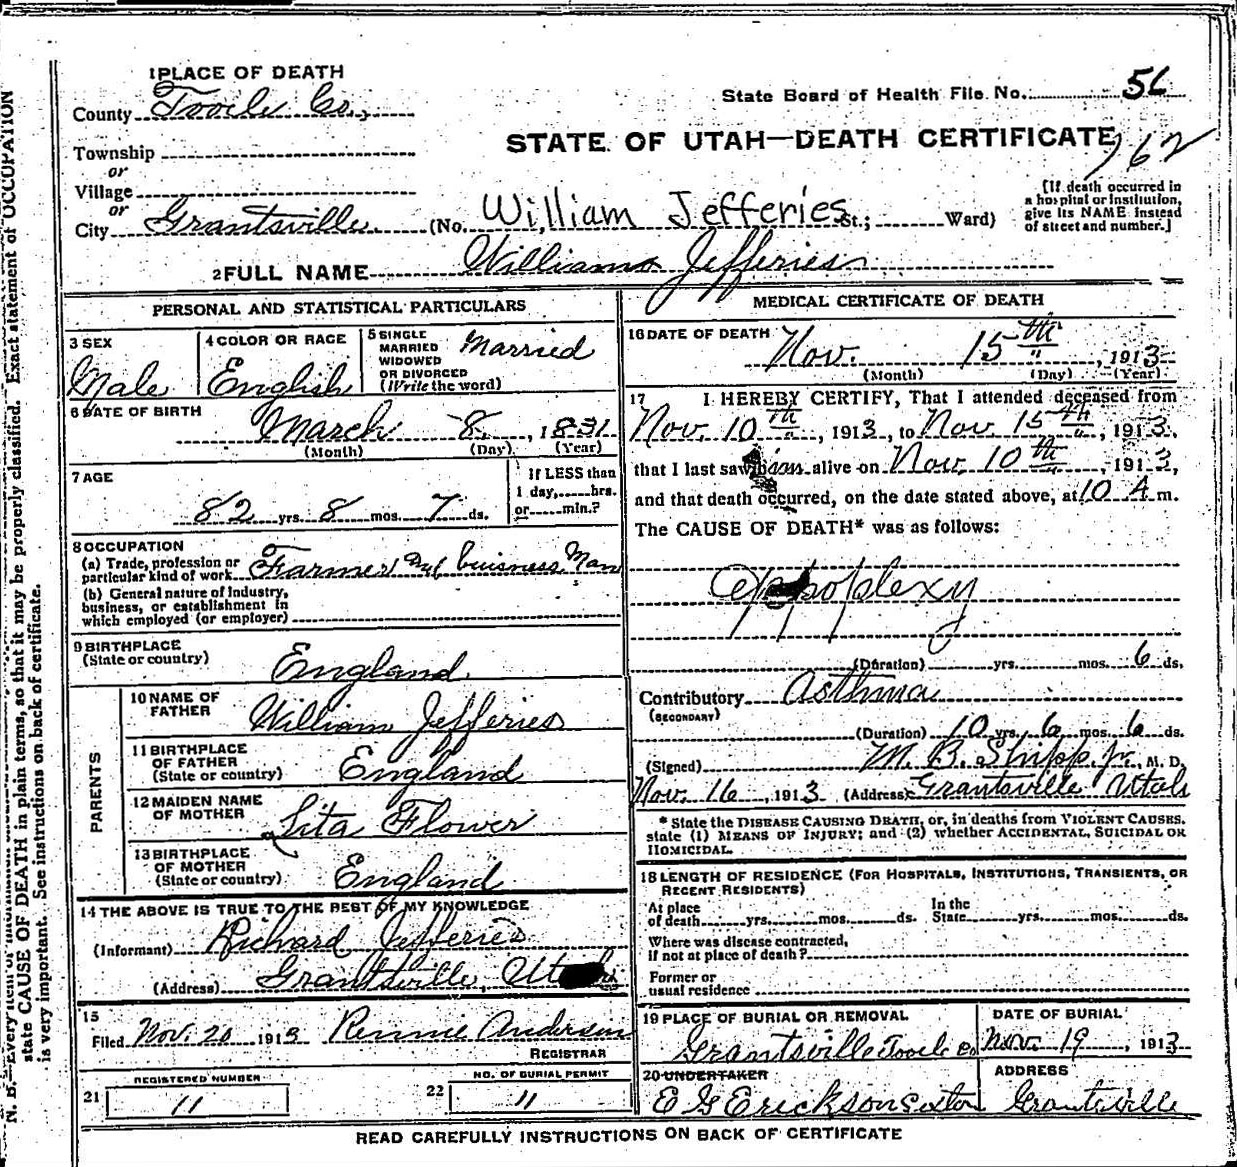 1 PLACE OF DEATH
County Tooele Co.,
State Board of Health File No. 56
STATE OF UTAH—DEATH CERTIFICATE
762
Township
or
Village
or
City Grantsville. (No. William Jefferies St.; Ward)
[If death occurred in
a hospital or institution,
give its NAME instead
of street and number.]
2 FULL NAME Williams Jefferies
PERSONAL AND STATISTICAL PARTICULARS
3 SEX
Male
4 COLOR OR RACE
English
5 SINGLE
MARRIED
WIDOWED
OR DIVORCED
(Write the word)
Married
6 DATE OF BIRTH
March 8, 1831
(Month) (Day) (Year)
7 AGE
82 yrs. 8 mos. 7 ds.
If LESS than
1 day, hrs.
or min.?
8 OCCUPATION
(a) Trade, profession or
particular kind of work Farmer and buisness Man
(b) General nature of Industry,
business, or establishment in
which employed (or employer)
9 BIRTHPLACE
(State or country)
England
PARENTS
10 NAME OF
FATHER
William Jefferies
11 BIRTHPLACE
OF FATHER
(State or country) England
12 MAIDEN NAME
OF MOTHER
Lita Flower
13 BIRTHPLACE
OF MOTHER
(State or country) England
14 THE ABOVE IS TRUE TO THE BEST OF MY KNOWLEDGE
(Informant) Richard Jefferies
(Address) Grantsville, Utah
15
Filed Nov. 20 1913 Rennie Anderson
REGISTRAR
REGISTERED NUMBER
21 11
NO. OF BURIAL PERMIT
22 11
MEDICAL CERTIFICATE OF DEATH
16 DATE OF DEATH
Nov. 15th, 1913
(Month) (Day) (Year)
17 I HEREBY CERTIFY, That I attended deceased from
Nov. 10th, 1913, to Nov. 15th, 1913,
that I last saw him alive on Nov. 10th, 1913,
and that death occurred, on the date stated above, at 10 A m.
The CAUSE OF DEATH* was as follows:
Appoplexy
(Duration) yrs. mos. 6 ds.
Contributory Asthma
(SECONDARY)
(Duration) 10 yrs. 6 mos. 6 ds.
(Signed) M. B. Shipp, Jr., M. D.
Nov. 16, 1913 (Address) Grantsville Utah
* State the DISEASE CAUSING DEATH, or, in deaths from VIOLENT CAUSES,
state (1) MEANS OF INJURY; and (2) whether ACCIDENTAL, SUICIDAL OR
HOMICIDAL.
18 LENGTH OF RESIDENCE (FOR HOSPITALS, INSTITUTIONS, TRANSIENTS, OR
RECENT RESIDENTS)
At place
of death yrs. mos. ds.
In the
State yrs. mos. ds.
Where was disease contracted,
if not at place of death?
Former or
usual residence
19 PLACE OF BURIAL OR REMOVAL
Grantsville Tooele Co
DATE OF BURIAL
Nov. 19, 1913
20 UNDERTAKER
E G Erickson Sexton
ADDRESS
Grantsville
READ CAREFULLY INSTRUCTIONS ON BACK OF CERTIFICATE
state CAUSE OF DEATH in plain terms, so that it may be properly classified. Exact statement of OCCUPATION
is very important. See instructions on back of certificate.